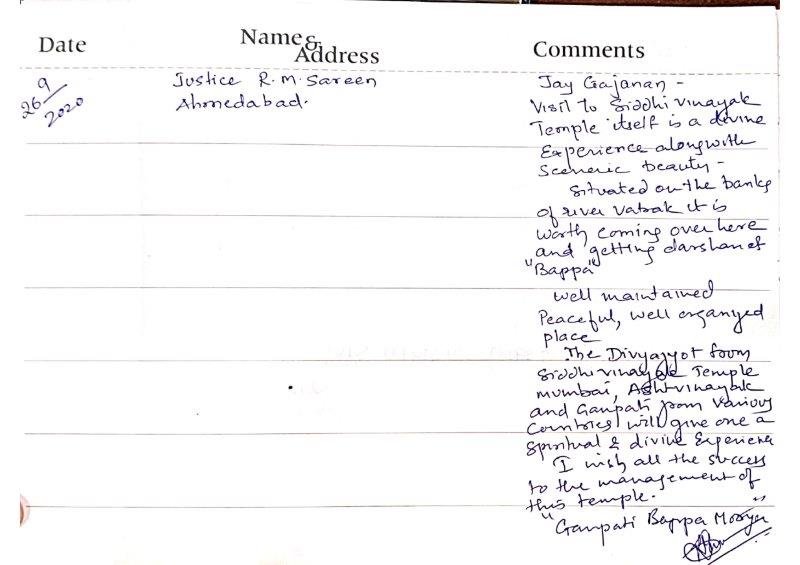 Date Name & Address Comments
26/9/2020
Justice R.M. Sareen
Ahmedabad.
Jay Gajanan -
Visit to Siddhi vinayak
Temple itself is a divine
Experience alongwith
Sceneric beauty -
situated on the banks
of river Vatrak it is
worth coming over here
and getting darshan of
"Bappa"
well maintained
Peaceful, well organyed
place
The Divyajyot from
Siddhi vinayak Temple
mumbai, Ashtvinayak
and Ganpati from various
Countries will give one a
Spiritual & divine Experience
I wish all the success
to the management of
this temple.
"Ganpati Bappa Morya"